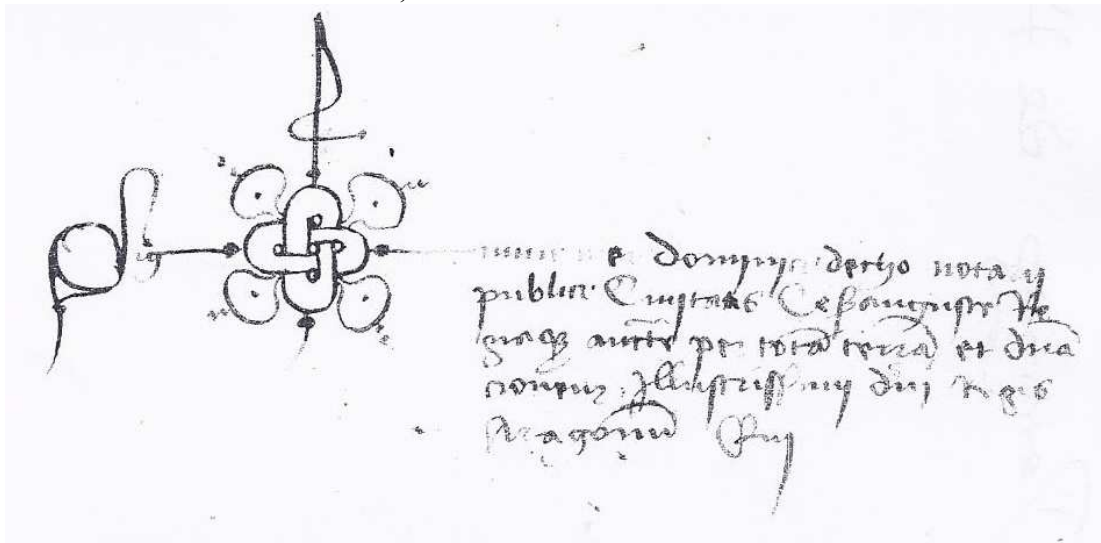 Sig num me dominici decho notarii
publici Civitatis Cesarauguste Re
giaq3 aucte per totā terrā et dnā
cionem Illustrissimi dni Regis
Aragonū Qui